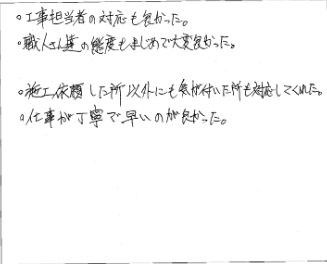 。工事担当者の対応も良かった。
。職人さん達の態度もまじめで大変良かった。
。施工依頼した所以外にも気が付いた所も対応してくれた。
。仕事が丁寧で早いのが良かった。